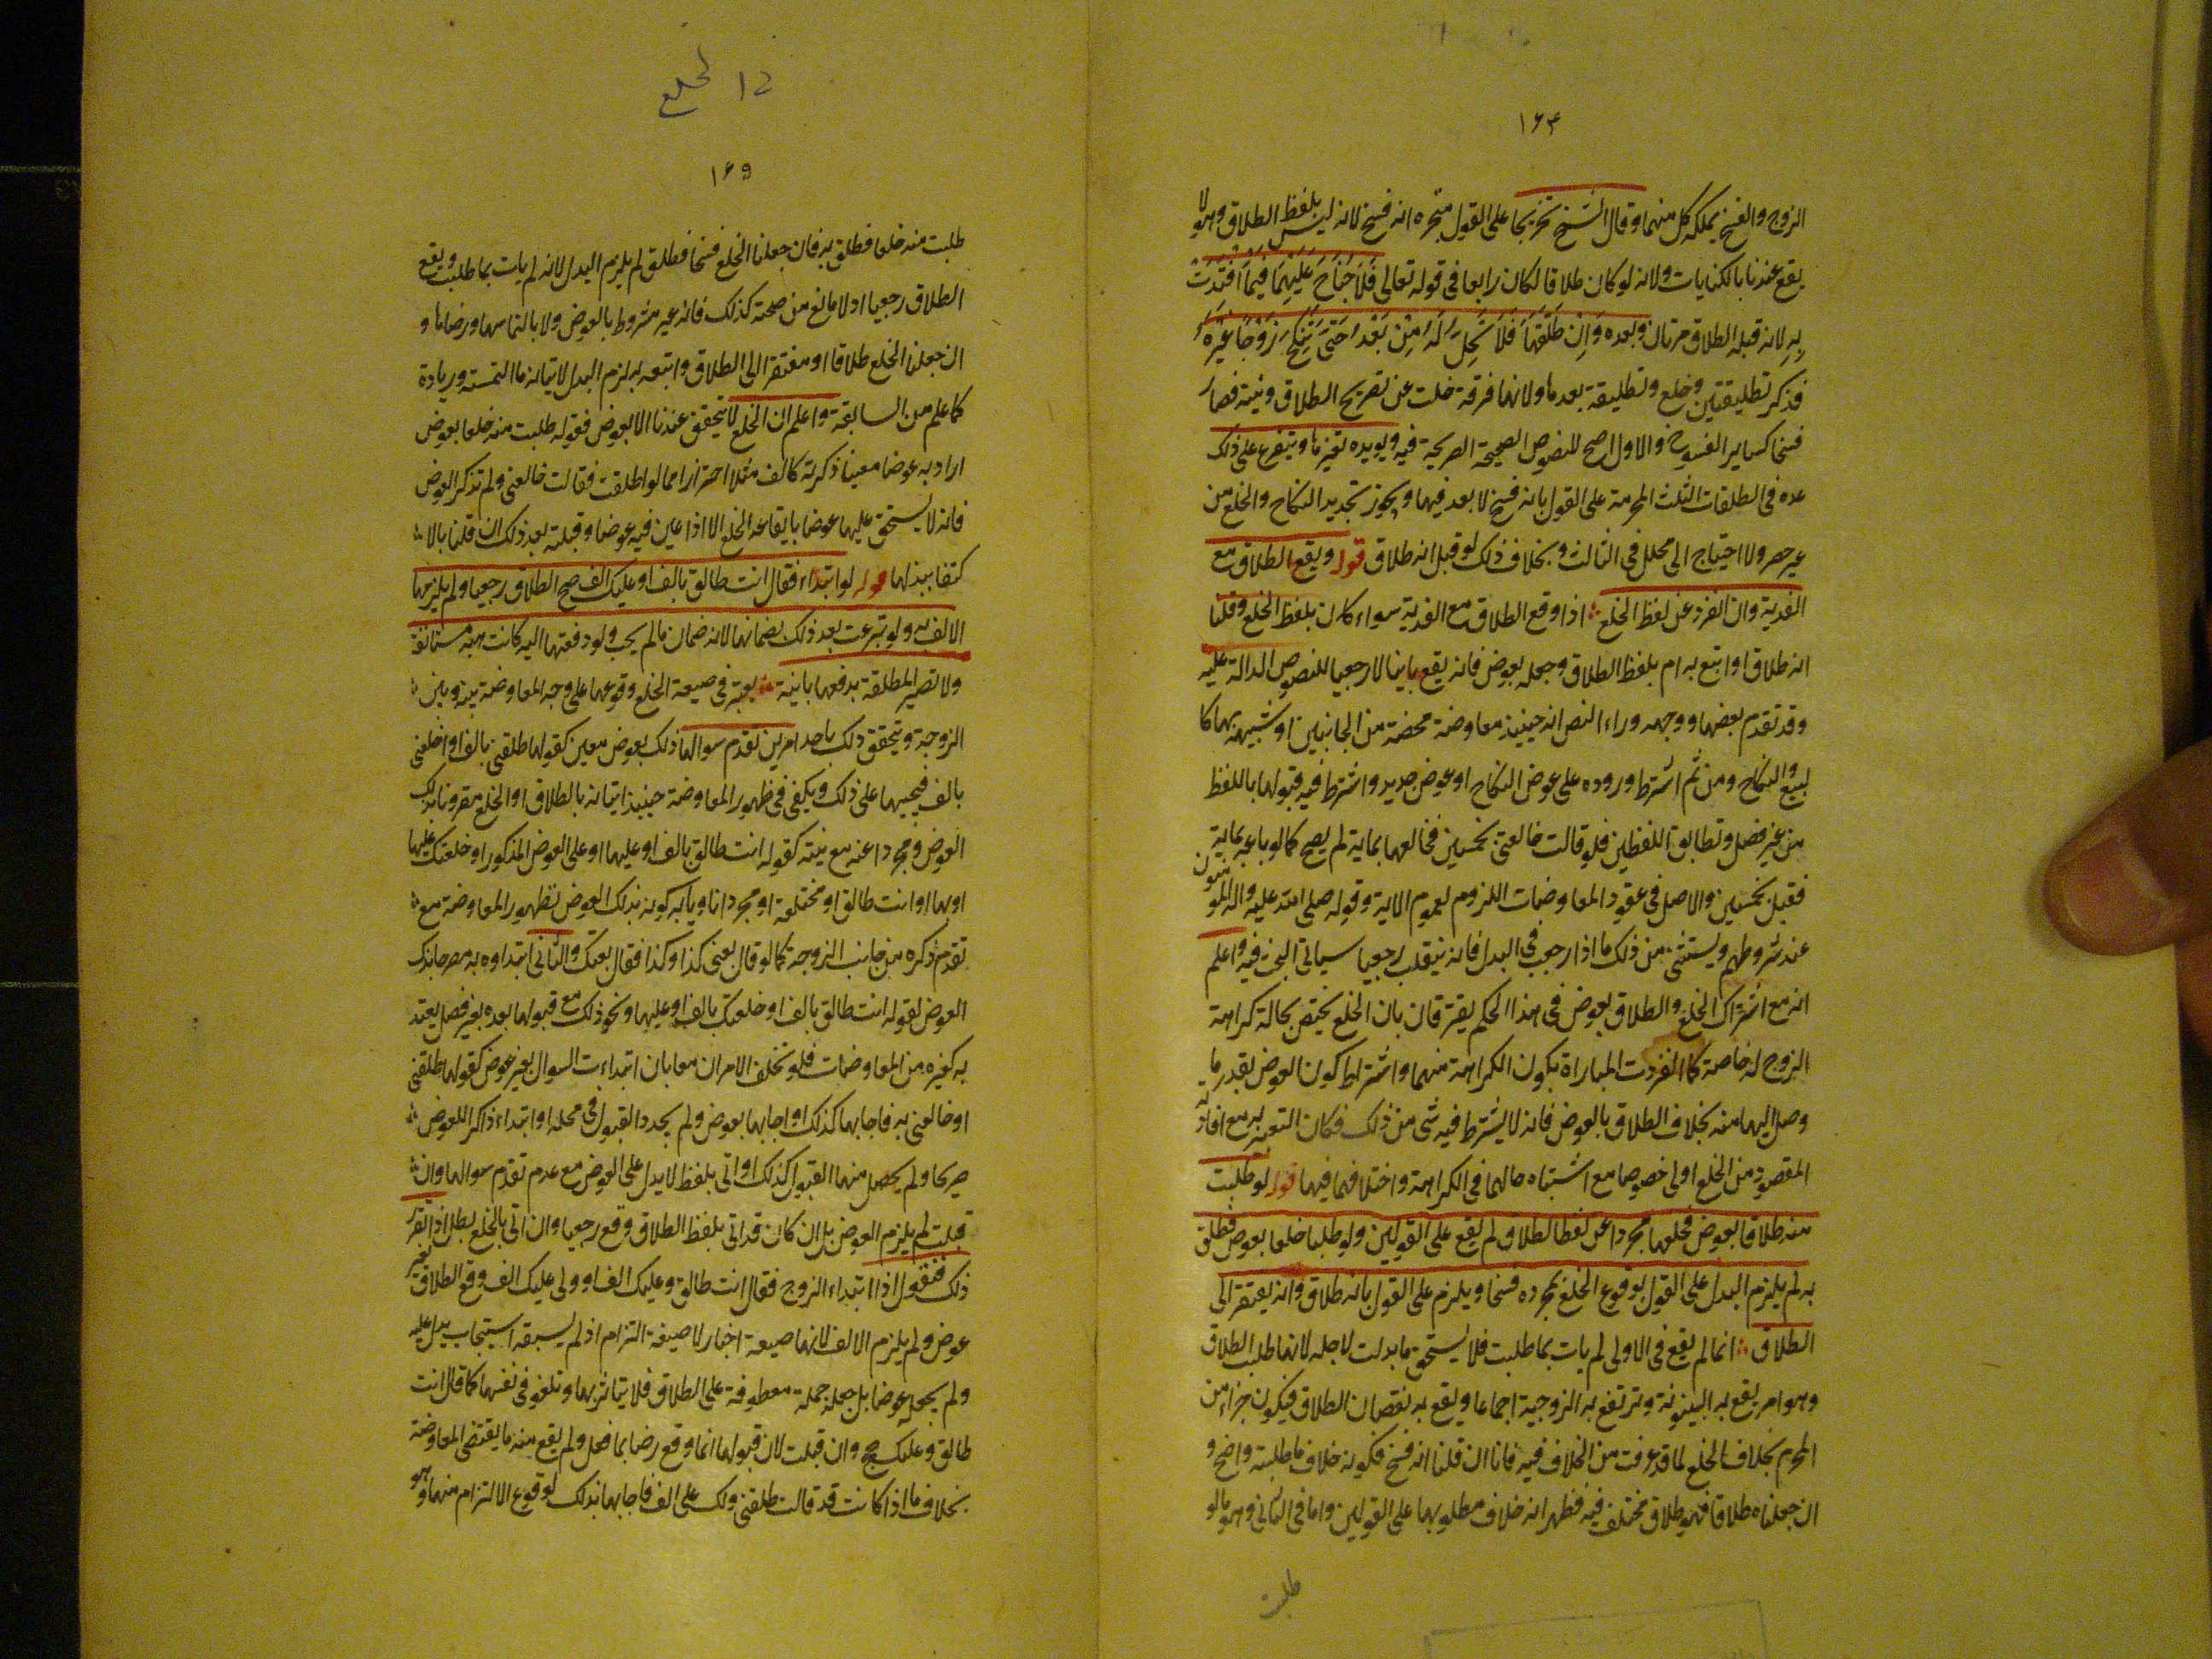 ١۶۴
الزوج والفسخ يملكه كل منهما وقال الشيخ تخريجا على القول بتجرده انه فسخ لانه ليس بلفظ الطلاق وهو لا
يقع عندنا بالكنايات ولانه لو كان طلاقا لكان رابعا في قوله تعالى فَلَا جُنَاحَ عَلَيْهِمَا فِيمَا افْتَدَتْ
بِهِ لانه قبله الطلاق مرتان وبعده وَاِنْ طَلَّقَهَا فَلَا تَحِلُّ لَهُ مِنْ بَعْدُ حَتَّى تَنْكِحَ زَوْجًا غَيْرَهُ
فذكر تطليقتين وخلع وتطليقة بعدها ولانها فرقة خلت عن تصريح الطلاق ونيته فصار
فسخا كساير الفسوخ والاول اصح للنصوص الصحيحة الصريحة فيه ويويده ويتفرع على ذلك
عده في الطلقات الثلث المحرمة على القول بانه فسخ لا يعد فيها ويجوز تجديد النكاح والخلع من
غير حصر ولا احتياج الى محلل في الثالث وبخلاف ذلك لو قيل انه طلاق قوله ويقع الطلاق مع
الفدية وان انفرد عن لفظ الخلع اذا وقع الطلاق مع الفدية سواء كان بلفظ الخلع وقلنا
انه طلاق او اتبع به ام بلفظ الطلاق وجعله بعوض فانه يقع باينا لا رجعيا للنصوص الدالة عليه
وقد تقدم بعضها ووجهه وراء النص انه حينيذ معاوضة محضة من الجانبين او شبيهة بها كا
لبيع والنكاح ومن ثم اشترط وروده على عوض النكاح او عوض جديد واشترط فيه قبولها باللفظ
من غير فصل وتطابق اللفظين فلو قالت خالعني بخمسين فخالعها بماية لم يصح كما لو باعه بماية
فقبل بخمسين والاصل في عقود المعاوضات اللزوم لعموم الاية وقوله صلى الله عليه واله المومنون
عند شروطهم ويستثنى من ذلك ما اذا رجعت في البدل فانه ينقلب رجعيا سياتي البحث فيه واعلم
انه مع اشتراك الخلع والطلاق بعوض في هذا الحكم يفترقان بان الخلع يختص بحالة كراهة
الزوج له خاصة كما انفردت المباراة بكون الكراهة منهما واشتراط كون العوض بقدر ما
وصل اليها منه بخلاف الطلاق بالعوض فانه لا يشترط فيه شى من ذلك فكان التعبير به مع افادته
المقصود من الخلع اولى خصوصا مع اشتباه حالهما في الكراهة واختلافهما فيها قوله لو طلبت
منه طلاقا بعوض فخلعها مجردا عن لفظ الطلاق لم يقع على القولين ولو طلبت خلعا بعوض فطلق
به لم يلزم البدل على القول بوقوع الخلع بمجرده فسخا ويلزم على القول بانه طلاق وانه يفتقر الى
الطلاق انما لم يقع في الاولى لم يات بما طلبت فلا يستحق ما بذلت لاجله لانها طلبت الطلاق
وهو امر يقع به البينونة وترتفع به الزوجية اجماعا ويقع به نقصان الطلاق فيكون جزاء من
المحرم بخلاف الخلع لما قد عرفت من الخلاف فيه فانا ان قلنا انه فسخ فكونه خلاف ما طلبته واضح و
ان جعلناه طلاقا فهو طلاق مختلف فيه فظهر انه خلاف مطلوبها على القولين واما في الثاني وهو ما لو
طلبت
في الخلع
١۶۵
طلبت منه خلعا فطلق به فان جعلنا الخلع فسخا فطلق لم يلزم البدل لانه لم يات بما طلبت ويقع
الطلاق رجعيا اذ لا مانع من صحته كذلك فانه غير مشروط بالعوض ولا بالتماسها ورضاها و
ان جعلنا الخلع طلاقا او مفتقرا الى الطلاق واتبعه به لزم البدل لاتيانه بما التمسته وزيادة
كما علم من السابقة واعلم ان الخلع لا يتحقق عندنا الا بعوض فقوله طلبت منه خلعا بعوض
اراد به عوضا معينا ذكرته كالف مثلا احترازا مما لو اطلقت فقالت خالعني ولم تذكر العوض
فانه لا يستحق عليها عوضا بايقاعه الخلع الا اذا عين فيه عوضا وقبلته بعد ذلك ان قلنا بالا
كتفا ببذلها قوله لو ابتداء فقال انت طالق بالف او عليك الف صح الطلاق رجعيا ولم يلزمها
الالف به ولو تبرعت بعد ذلك بضمانها لانه ضمان ما لم يجب ولو دفعتها اليه كانت هبة مستانفة
ولا تصير المطلقة بدفعها باينة يعتبر في صيغة الخلع وقوعها على وجه المعاوضة بينه وبين
الزوجة ويتحقق ذلك باحد امرين تقدم سوالها ذلك بعوض معين كقولها طلقني بالف او اخلعني
بالف فيجيبها على ذلك ويكفي في ظهور المعاوضة حينيذ اتيانه بالطلاق او الخلع مقرونا بذلك
العوض ومجردا عنه مع نيته كقوله انت طالق بالف او عليها او على العوض المذكور او خلعتك عليها
او بها او انت طالق او مختلعة او مجرد انا وياكبركونه بذلك العوض لظهور المعاوضة مع
تقدم ذكره من جانب الزوجة كما لو قال بعني كذا وكذا فقال بعتك والثاني ابتداوه به مصرحا بذكر
العوض لقوله انت طالق بالف او خلعتك بالف او عليها ونحو ذلك مع قبولها بعده بغير فصل يعتد
به كغيره من المعاوضات فلو تخلف الامران معا بان ابتداءت السوال بغير عوض كقولها طلقني
او خالعني به فاجابها كذلك او اجابها بعوض ولم يجدد القبول في محله او ابتداء ذاكرا للعوض
صريحا ولم يحصل منها القبول كذلك او اتى بلفظ لا يدل على العوض مع عدم تقدم سوالها وان
قبلت لم يلزم العوض بل ان كان قد اتى بلفظ الطلاق وقع رجعيا وان اتى بالخلع بطل اذا تقرر
ذلك فنقول اذا ابتداء الزوج فقال انت طالق وعليك الف او ولى عليك الف وقع الطلاق بغير
عوض ولم يلزم الالف لانها صيغة اخبار لا صيغة التزام اذ لم يسبقه استيجاب يدل عليه
ولم يجعله عوضا بل جعله جملة معطوفة على الطلاق فلا يتاثر بها وتلغو في نفسها كما قال انت
طالق وعليك حج وان قبلت لان قبولها انما وقع رضا بما فعل ولم يقع منه ما يقتضي المعاوضة
بخلاف ما اذا كانت قد قالت طلقني ولك على الف فاجابها بذلك لوقوع الالتزام منها وهو